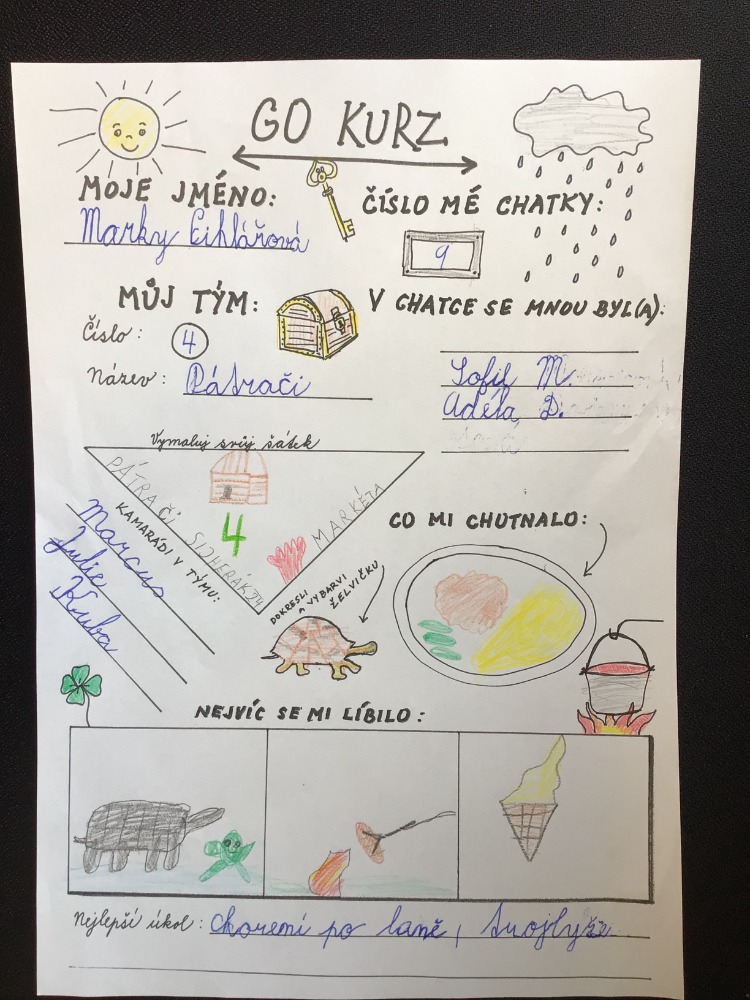 GO KURZ
MOJE JMÉNO:
Marky Cihlářová
ČÍSLO MÉ CHATKY:
9
MŮJ TÝM:
Číslo: 4
Název: Pátrači
V CHATCE SE MNOU BYL(A):
Sofie M.
Adéla D.
Vymaluj svůj šátek
PÁTRAČI
4
MARKÉTA
KAMARÁDI V TÝMU:
Marcus
Julie
Kuba
CO MI CHUTNALO:
DOKRESLI
A VYBARVI
ŽELVIČKU
NEJVÍC SE MI LÍBILO:
Nejlepší úkol: chození po laně, trojlyže